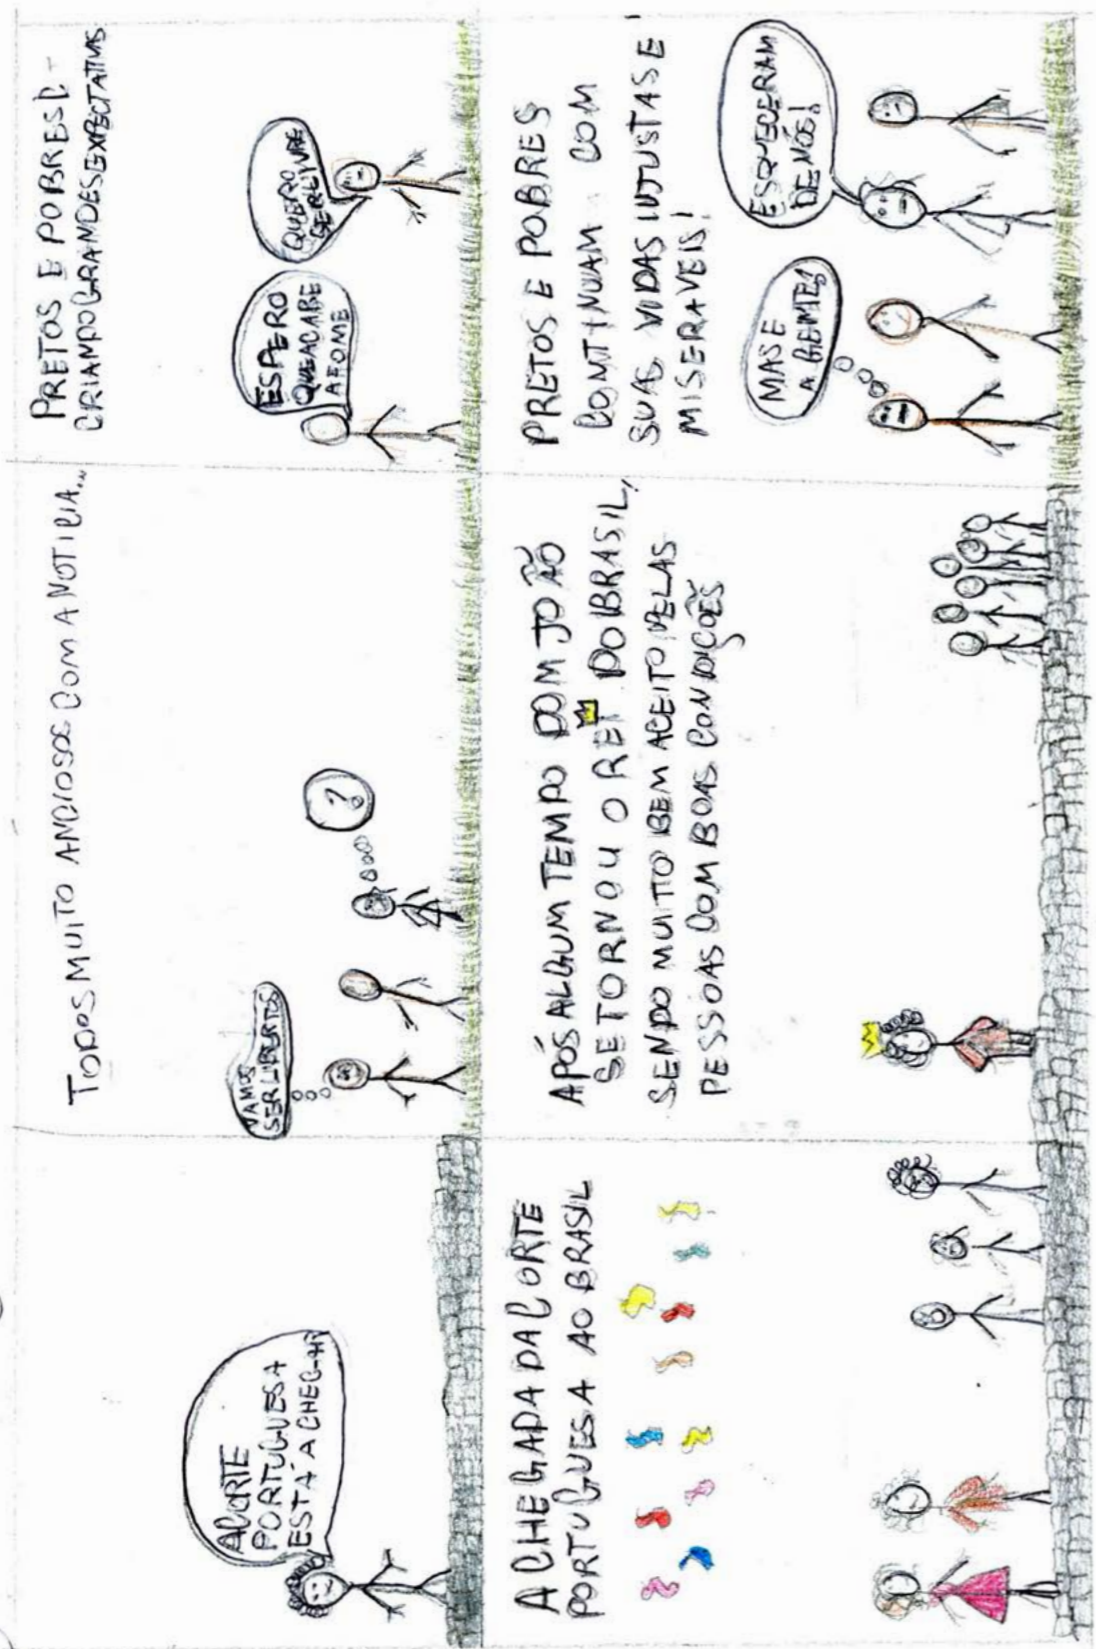 A CORTE
PORTUGUESA
ESTÁ A CHEGAR
TODOS MUITO ANCIOSOS COM A NOTICIA...
VAMOS
SER LIBERTOS
?
PRETOS E POBRES
CRIANDO GRANDES EXPECTATIVAS
ESPERO
QUE ACABE
A FOME
QUERO
SER LIVRE
A CHEGADA DA CORTE
PORTUGUESA AO BRASIL
APÓS ALGUM TEMPO DOM JOÃO
SE TORNOU O REI DO BRASIL,
SENDO MUITO BEM ACEITO PELAS
PESSOAS COM BOAS CONDIÇÕES
PRETOS E POBRES
CONTINUAM COM
SUAS VIDAS INJUSTAS E
MISERAVEIS!
MAS E
A GENTE?
ESQUECERAM
DE NÓS!